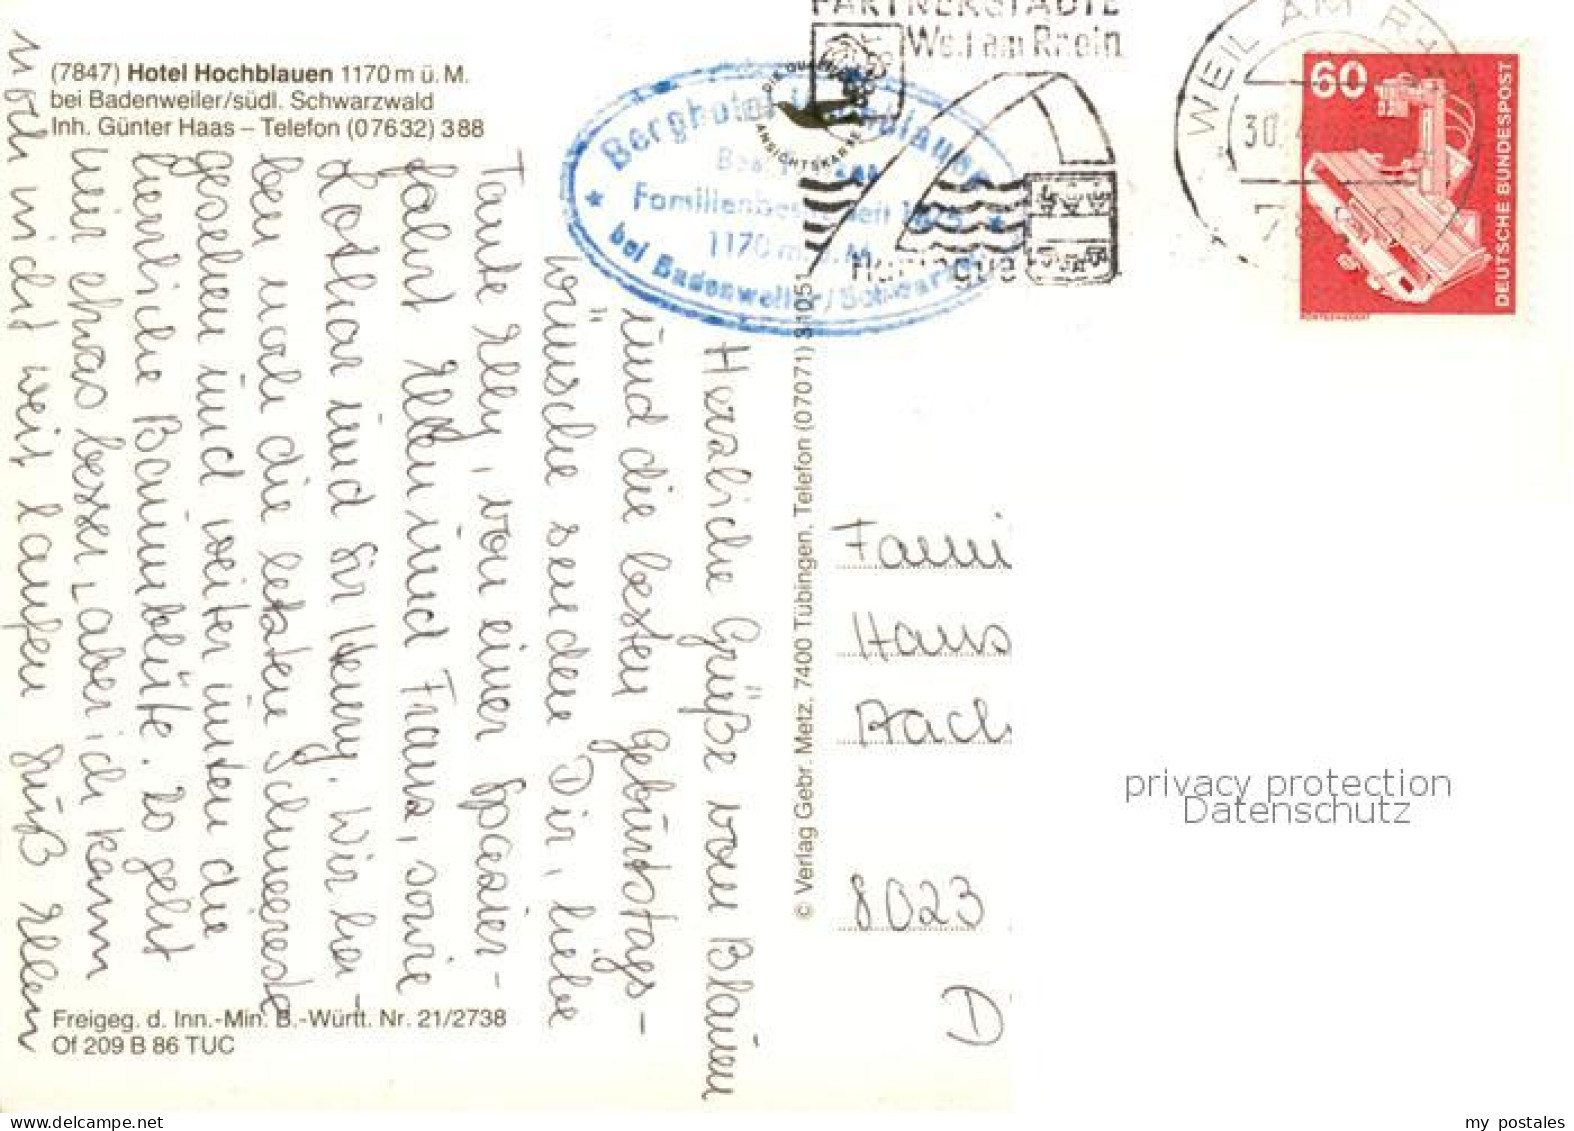 (7847) Hotel Hochblauen 1170 m ü. M.
bei Badenweiler/südl. Schwarzwald
Inh. Günter Haas – Telefon (07632) 388
Herzliche Grüße vom Blauen
und die besten Geburtstags-
wünsche senden Dir, liebe
Tante Elly, von einer Spazier-
fahrt Ellen und Franz, sowie
Lothar und
Wir ha-
ben noch die letzten Schneereste
gesehen und weiter unten die
herrliche Baumblüte. So geht
mir etwas besser, aber ich kann
noch nicht weit laufen Gruß Ellen
Freigeg. d. Inn.-Min. B.-Württ. Nr. 21/2738
Of 209 B 86 TUC
© Verlag Gebr. Metz, 7400 Tübingen, Telefon (07071) 31051
Berghotel Hochblauen
Familienbesitz seit 1875
1170 m ü. M.
bei Badenweiler/Schwarzwald
PARTNERSTÄDTE
Weil am Rhein
Huningue
ANSICHTSKARTE
WEIL AM RHEIN
30.4
60
DEUTSCHE BUNDESPOST
Fami
Haus
8023
D
privacy protection
Datenschutz
my postales